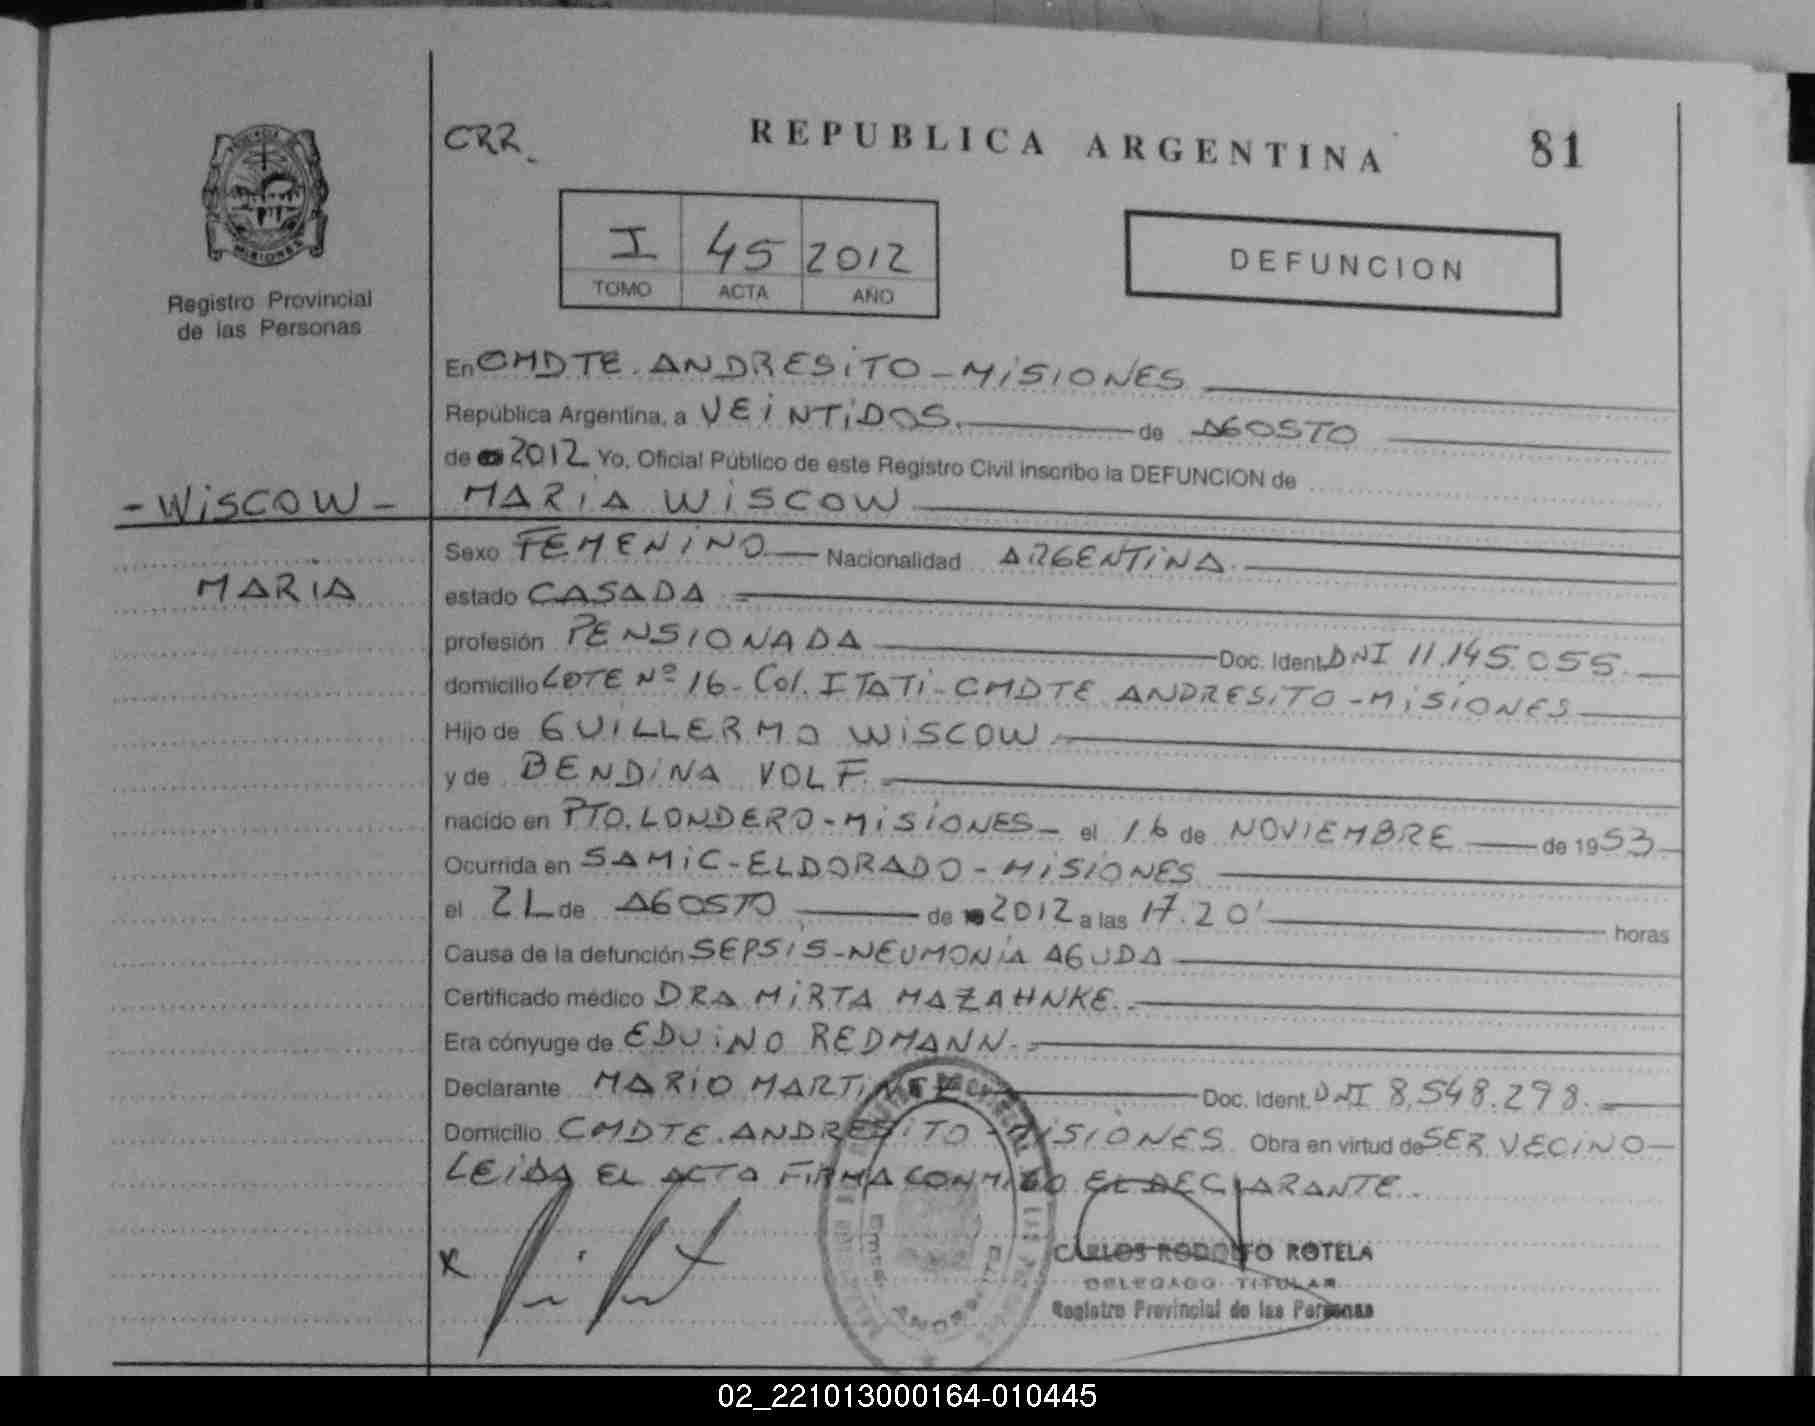 CRR.
REPUBLICA ARGENTINA
81
I 45 2012
TOMO ACTA AÑO
DEFUNCION
MISIONES
Registro Provincial
de las Personas
En CMDTE. ANDRESiTO - MiSiONES
República Argentina, a VEiNTiDOS de AGOSTO
de 2012 Yo, Oficial Público de este Registro Civil inscribo la DEFUNCION de
- WiSCOW -
MARiA WiSCOW
Sexo FEMENiNO Nacionalidad ARGENTiNA
MARiA
estado CASADA
profesión PENSIONADA Doc. Ident. DNI 11.145.055.
domicilio LOTE Nº 16 - Col. ITATi - CMDTE ANDRESiTO - MiSiONES
Hijo de GUiLLERMO WiSCOW
y de BENDiNA VOLF.
nacido en PTO. LONDERO - MiSiONES - el 16 de NOVIEMBRE de 1953
Ocurrida en SAMiC - ELDORADO - MiSiONES
el 21 de AGOSTO de 2012 a las 17.20' horas
Causa de la defunción SEPSiS - NEUMONiA AGUDA
Certificado médico DRA MiRTA MAZAHNKE.
Era cónyuge de EDUiNO REDMANN.
Declarante MARiO MARTiNEZ Doc. Ident. DNI 8.548.298.
Domicilio CMDTE. ANDRESiTO - MiSiONES. Obra en virtud de SER VECiNO -
LEiDA EL ACTA FiRMA CONMiGO EL DECLARANTE.
x
CARLOS RODOLFO ROTELA
DELEGADO TITULAR
Registro Provincial de las Personas
02_221013000164-010445